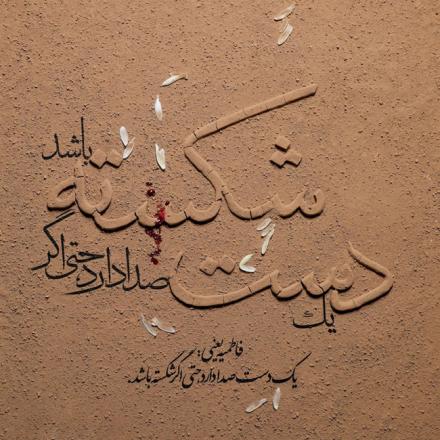 یک دست صدا دارد حتی اگر شکسته باشد
فاطمیه یعنی؛
یک دست صدا دارد حتی اگر شکسته باشد.